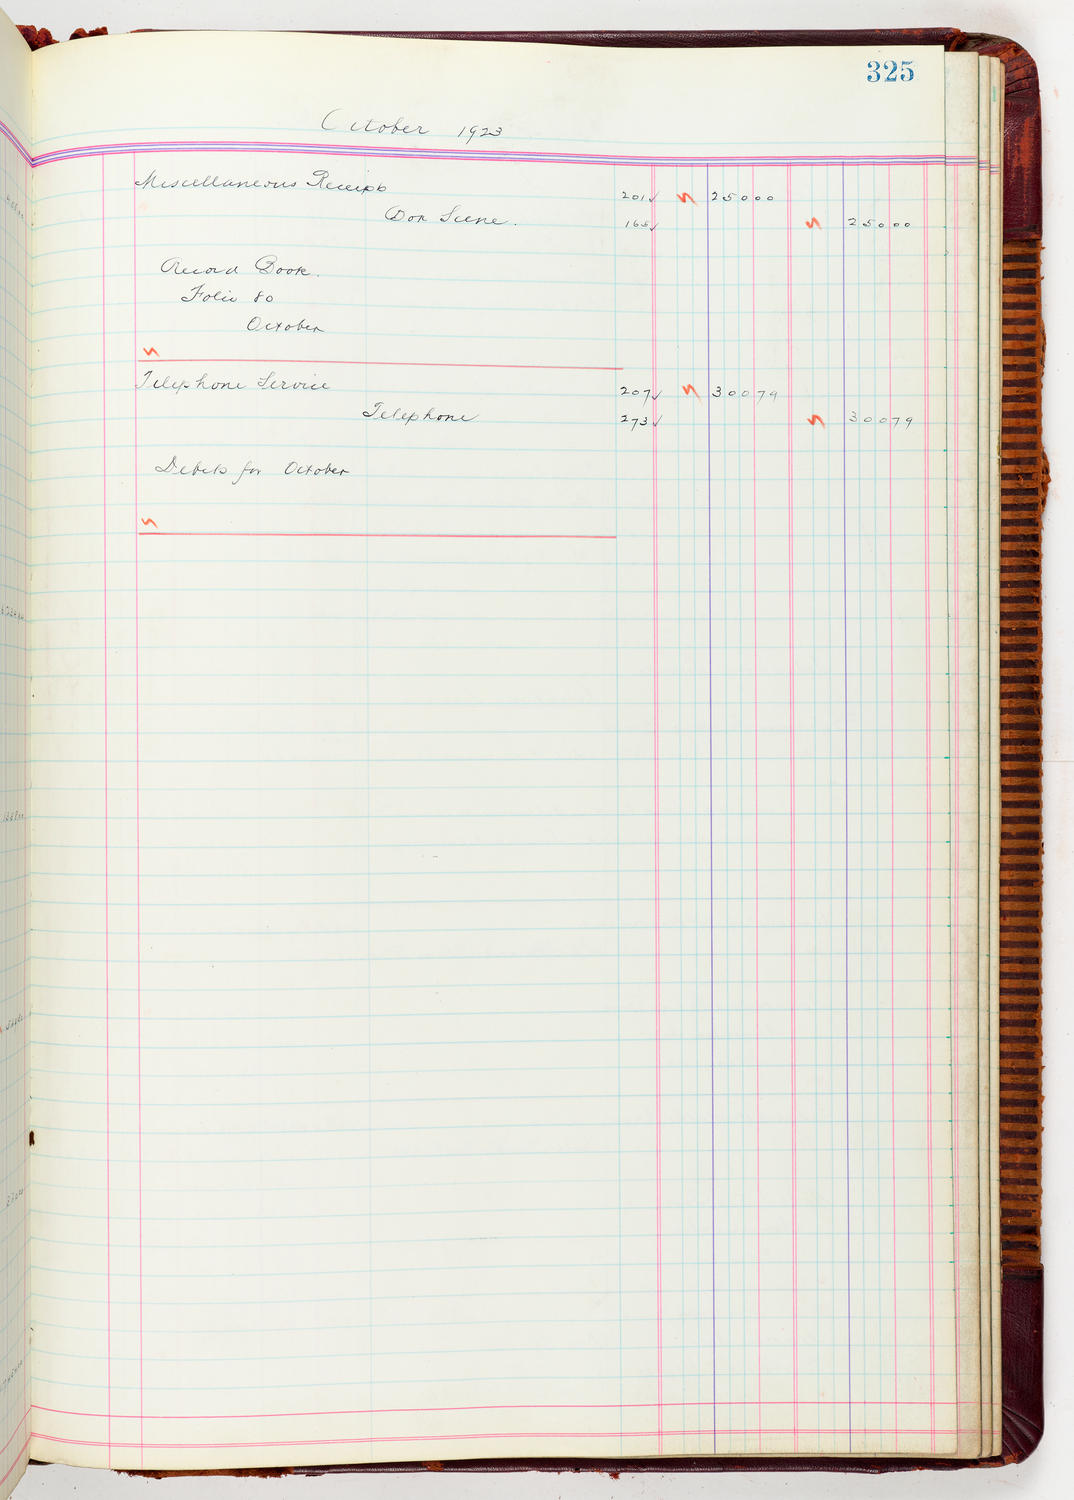 325
October 1923
Miscellaneous Receipts 201✓ 25000
Don Scene. 165✓ 25000
Record Book.
Folio 80
October
Telephone Service 207✓ 30079
Telephone 273✓ 30079
Debits for October